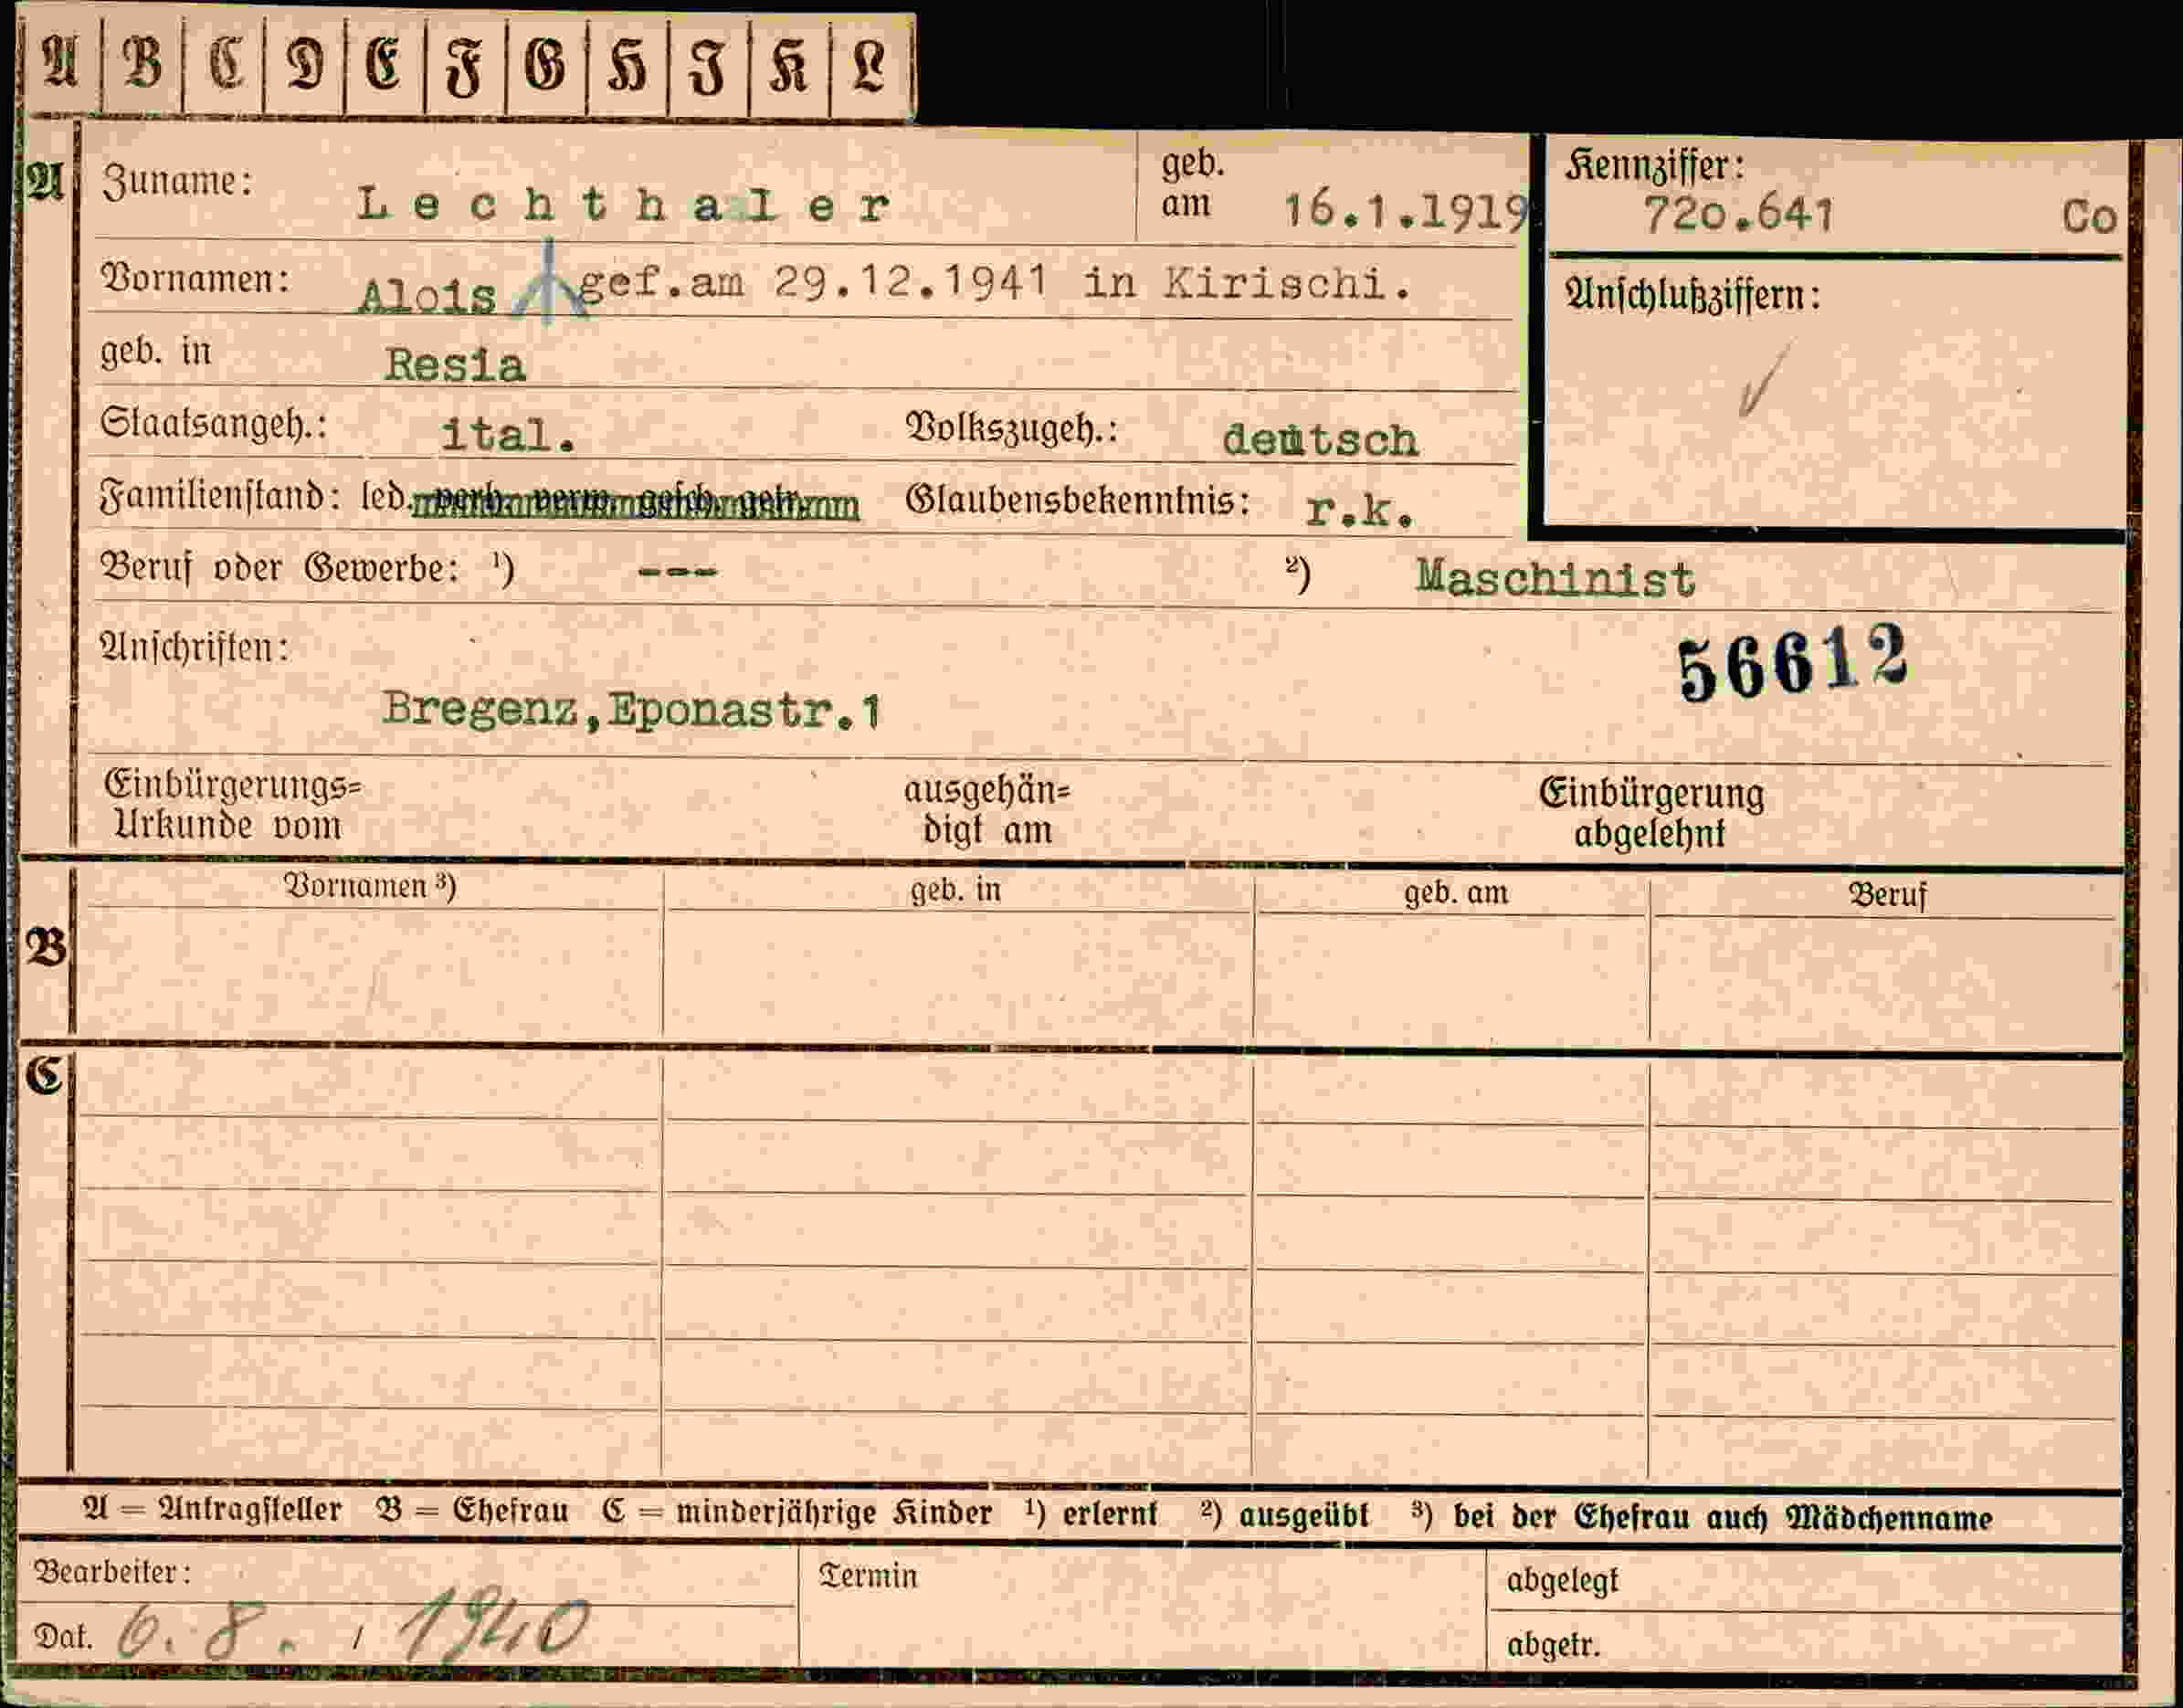 A B C D E F G H I K L
A Zuname: Lechthaler geb. am 16.1.1919 Kennziffer: 720.641 Co
Vornamen: Alois gef.am 29.12.1941 in Kirischi. Anschlußziffern:
geb. in Resia
Staatsangeh.: ital. Volkszugeh.: deutsch
Familienstand: led. verh. verw. gesch. getr. Glaubensbekenntnis: r.k.
Beruf oder Gewerbe: ¹) --- ²) Maschinist
Anschriften: 56612
Bregenz,Eponastr.1
Einbürgerungs= ausgehän= Einbürgerung
Urkunde vom digt am abgelehnt
B Vornamen ³) geb. in geb. am Beruf
C
A = Antragsteller B = Ehefrau C = minderjährige Kinder ¹) erlernt ²) ausgeübt ³) bei der Ehefrau auch Mädchenname
Bearbeiter: Termin abgelegt
Dat. 6.8. / 1940 abgetr.